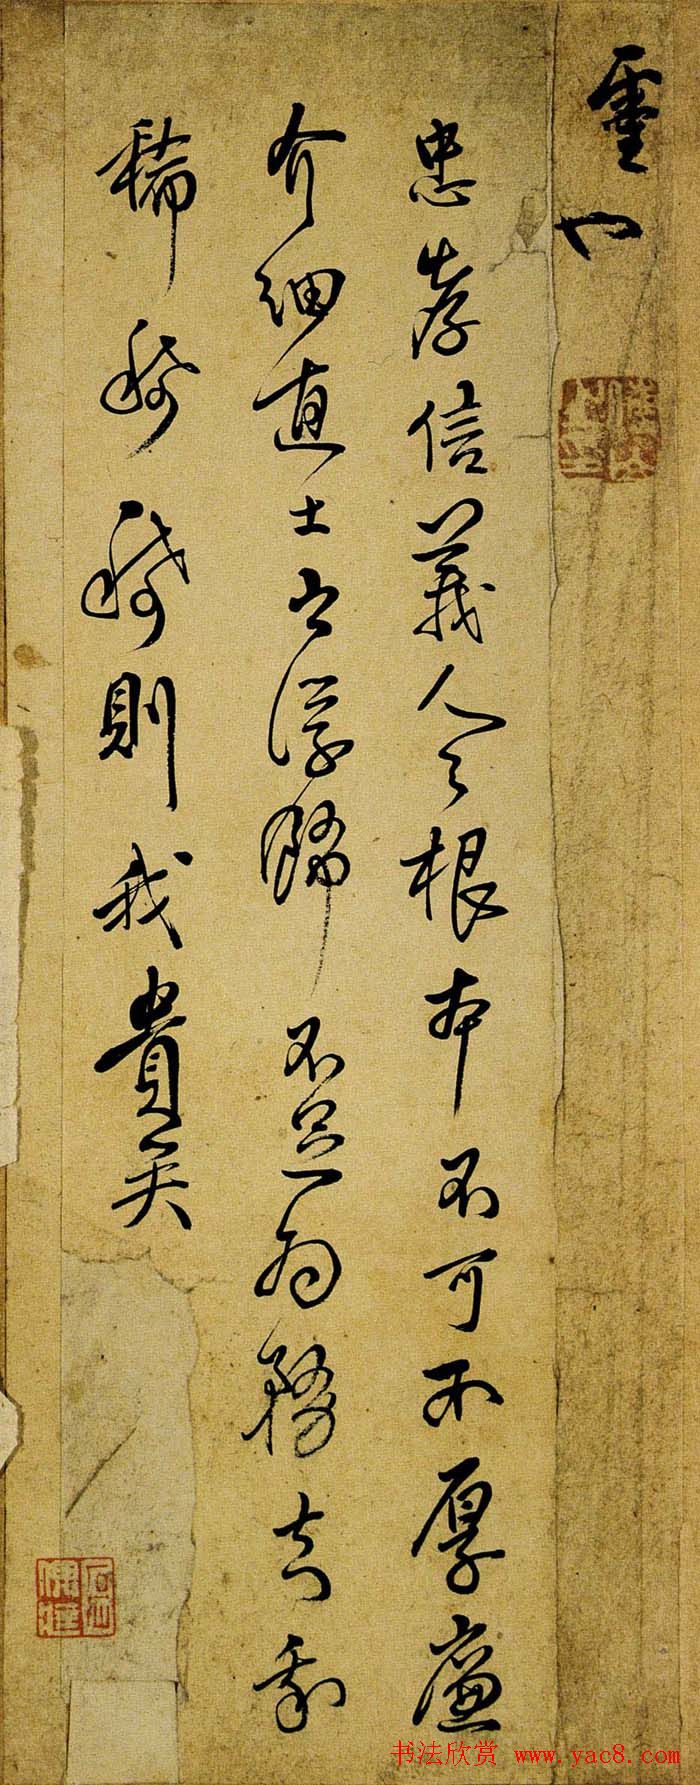 靈也
忠孝信義人之根本不可不厚廉
介細直士之浮飾不足為務知我
稀則我貴矣
书法欣赏 www.yac8.com